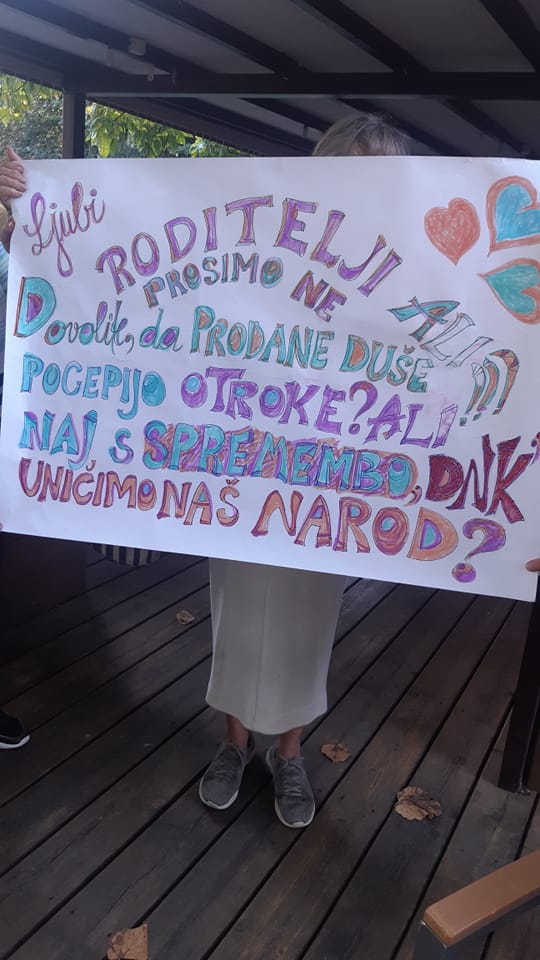 Ljubi
RODITELJI
PROSIMO NE
Dovolit, da PRODANE DUŠE ALI!!!
POCEPIJO OTROKE? ALI
NAJ S SPREMEMBO, DNK'
UNIČIMO NAŠ NAROD?